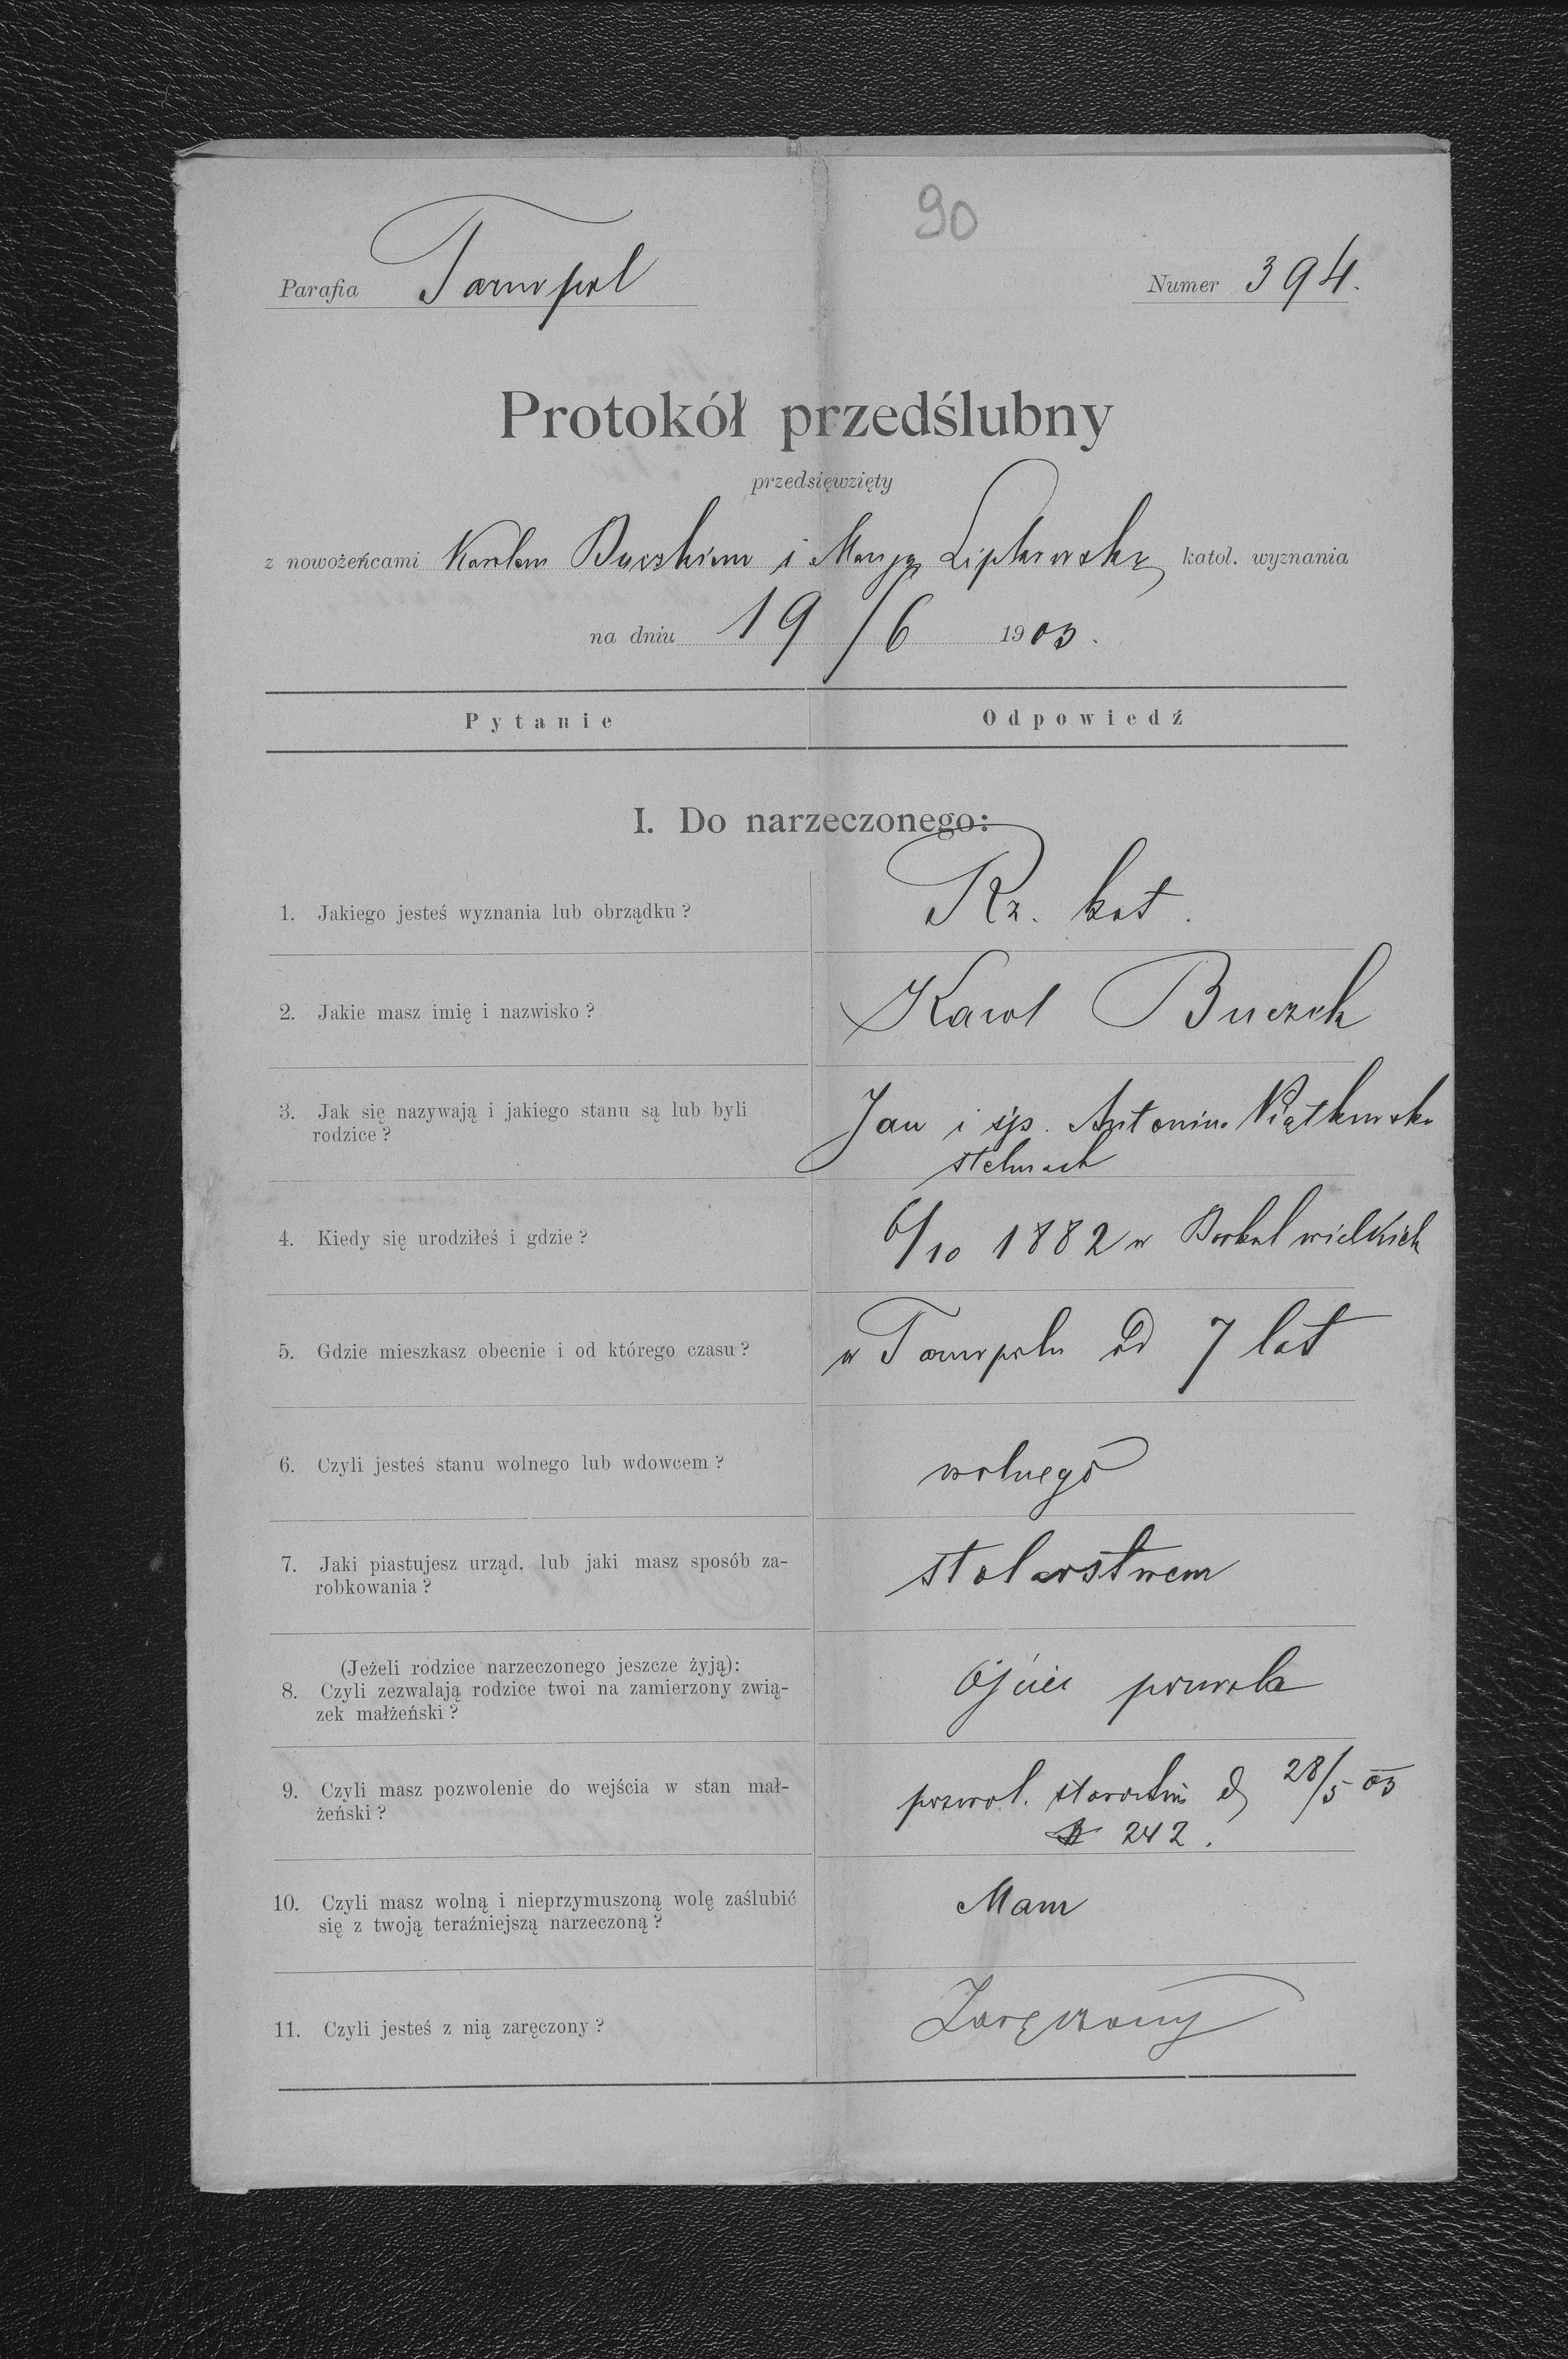 90
Parafia Tarnopol
Numer 394.
Protokół przedślubny
przedsięwzięty
z nowożeńcami Karolem Buczkiem i Maryą Lipkowską katol. wyznania
na dniu 19/6 1903.
Pytanie
Odpowiedź
I. Do narzeczonego:
1. Jakiego jesteś wyznania lub obrządku?
Rz. kat.
2. Jakie masz imię i nazwisko?
Karol Buczek
3. Jak się nazywają i jakiego stanu są lub byli
rodzice?
Jan i śp. Antonina
stelmach
4. Kiedy się urodziłeś i gdzie?
6/10 1882 w Borkach wielkich
5. Gdzie mieszkasz obecnie i od którego czasu?
w Tarnopolu od 7 lat
6. Czyli jesteś stanu wolnego lub wdowcem?
wolnego
7. Jaki piastujesz urząd, lub jaki masz sposób za-
robkowania?
stolarstwem
(Jeżeli rodzice narzeczonego jeszcze żyją):
8. Czyli zezwalają rodzice twoi na zamierzony zwią-
zek małżeński?
Ojciec pozwala
9. Czyli masz pozwolenie do wejścia w stan mał-
żeński?
pozwol. starostwa d 28/5 03
242.
10. Czyli masz wolną i nieprzymuszoną wolę zaślubić
się z twoją teraźniejszą narzeczoną?
Mam
11. Czyli jesteś z nią zaręczony?
Zaręczony